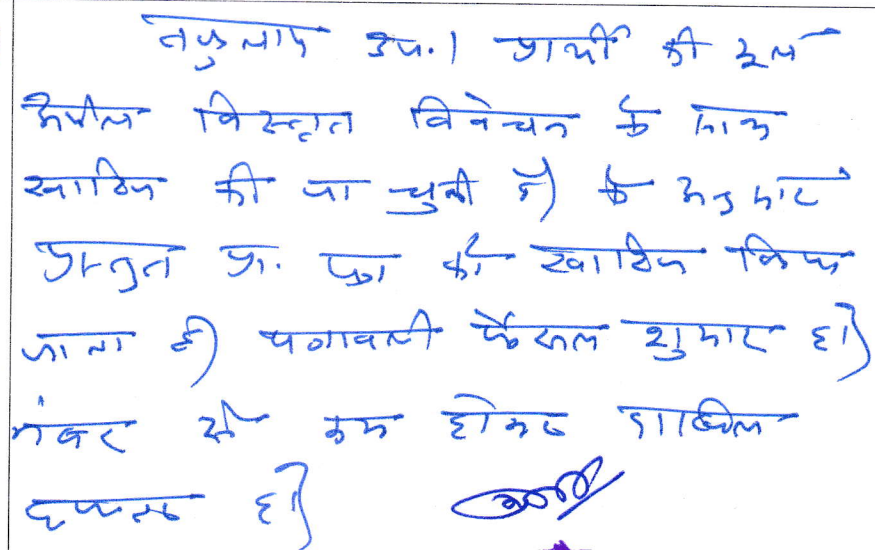 वकुलाय उप.। प्रार्थी की मूल
अपील विस्तृत विवेचन के साथ
खारिज की जा चुकी है। के अनुसार
प्रस्तुत प्रा. पत्र को खारिज किया
जाता है। पत्रावली फैसल शुमार हो।
नंबर से कम होकर दाखिल
दफ्तर हो।